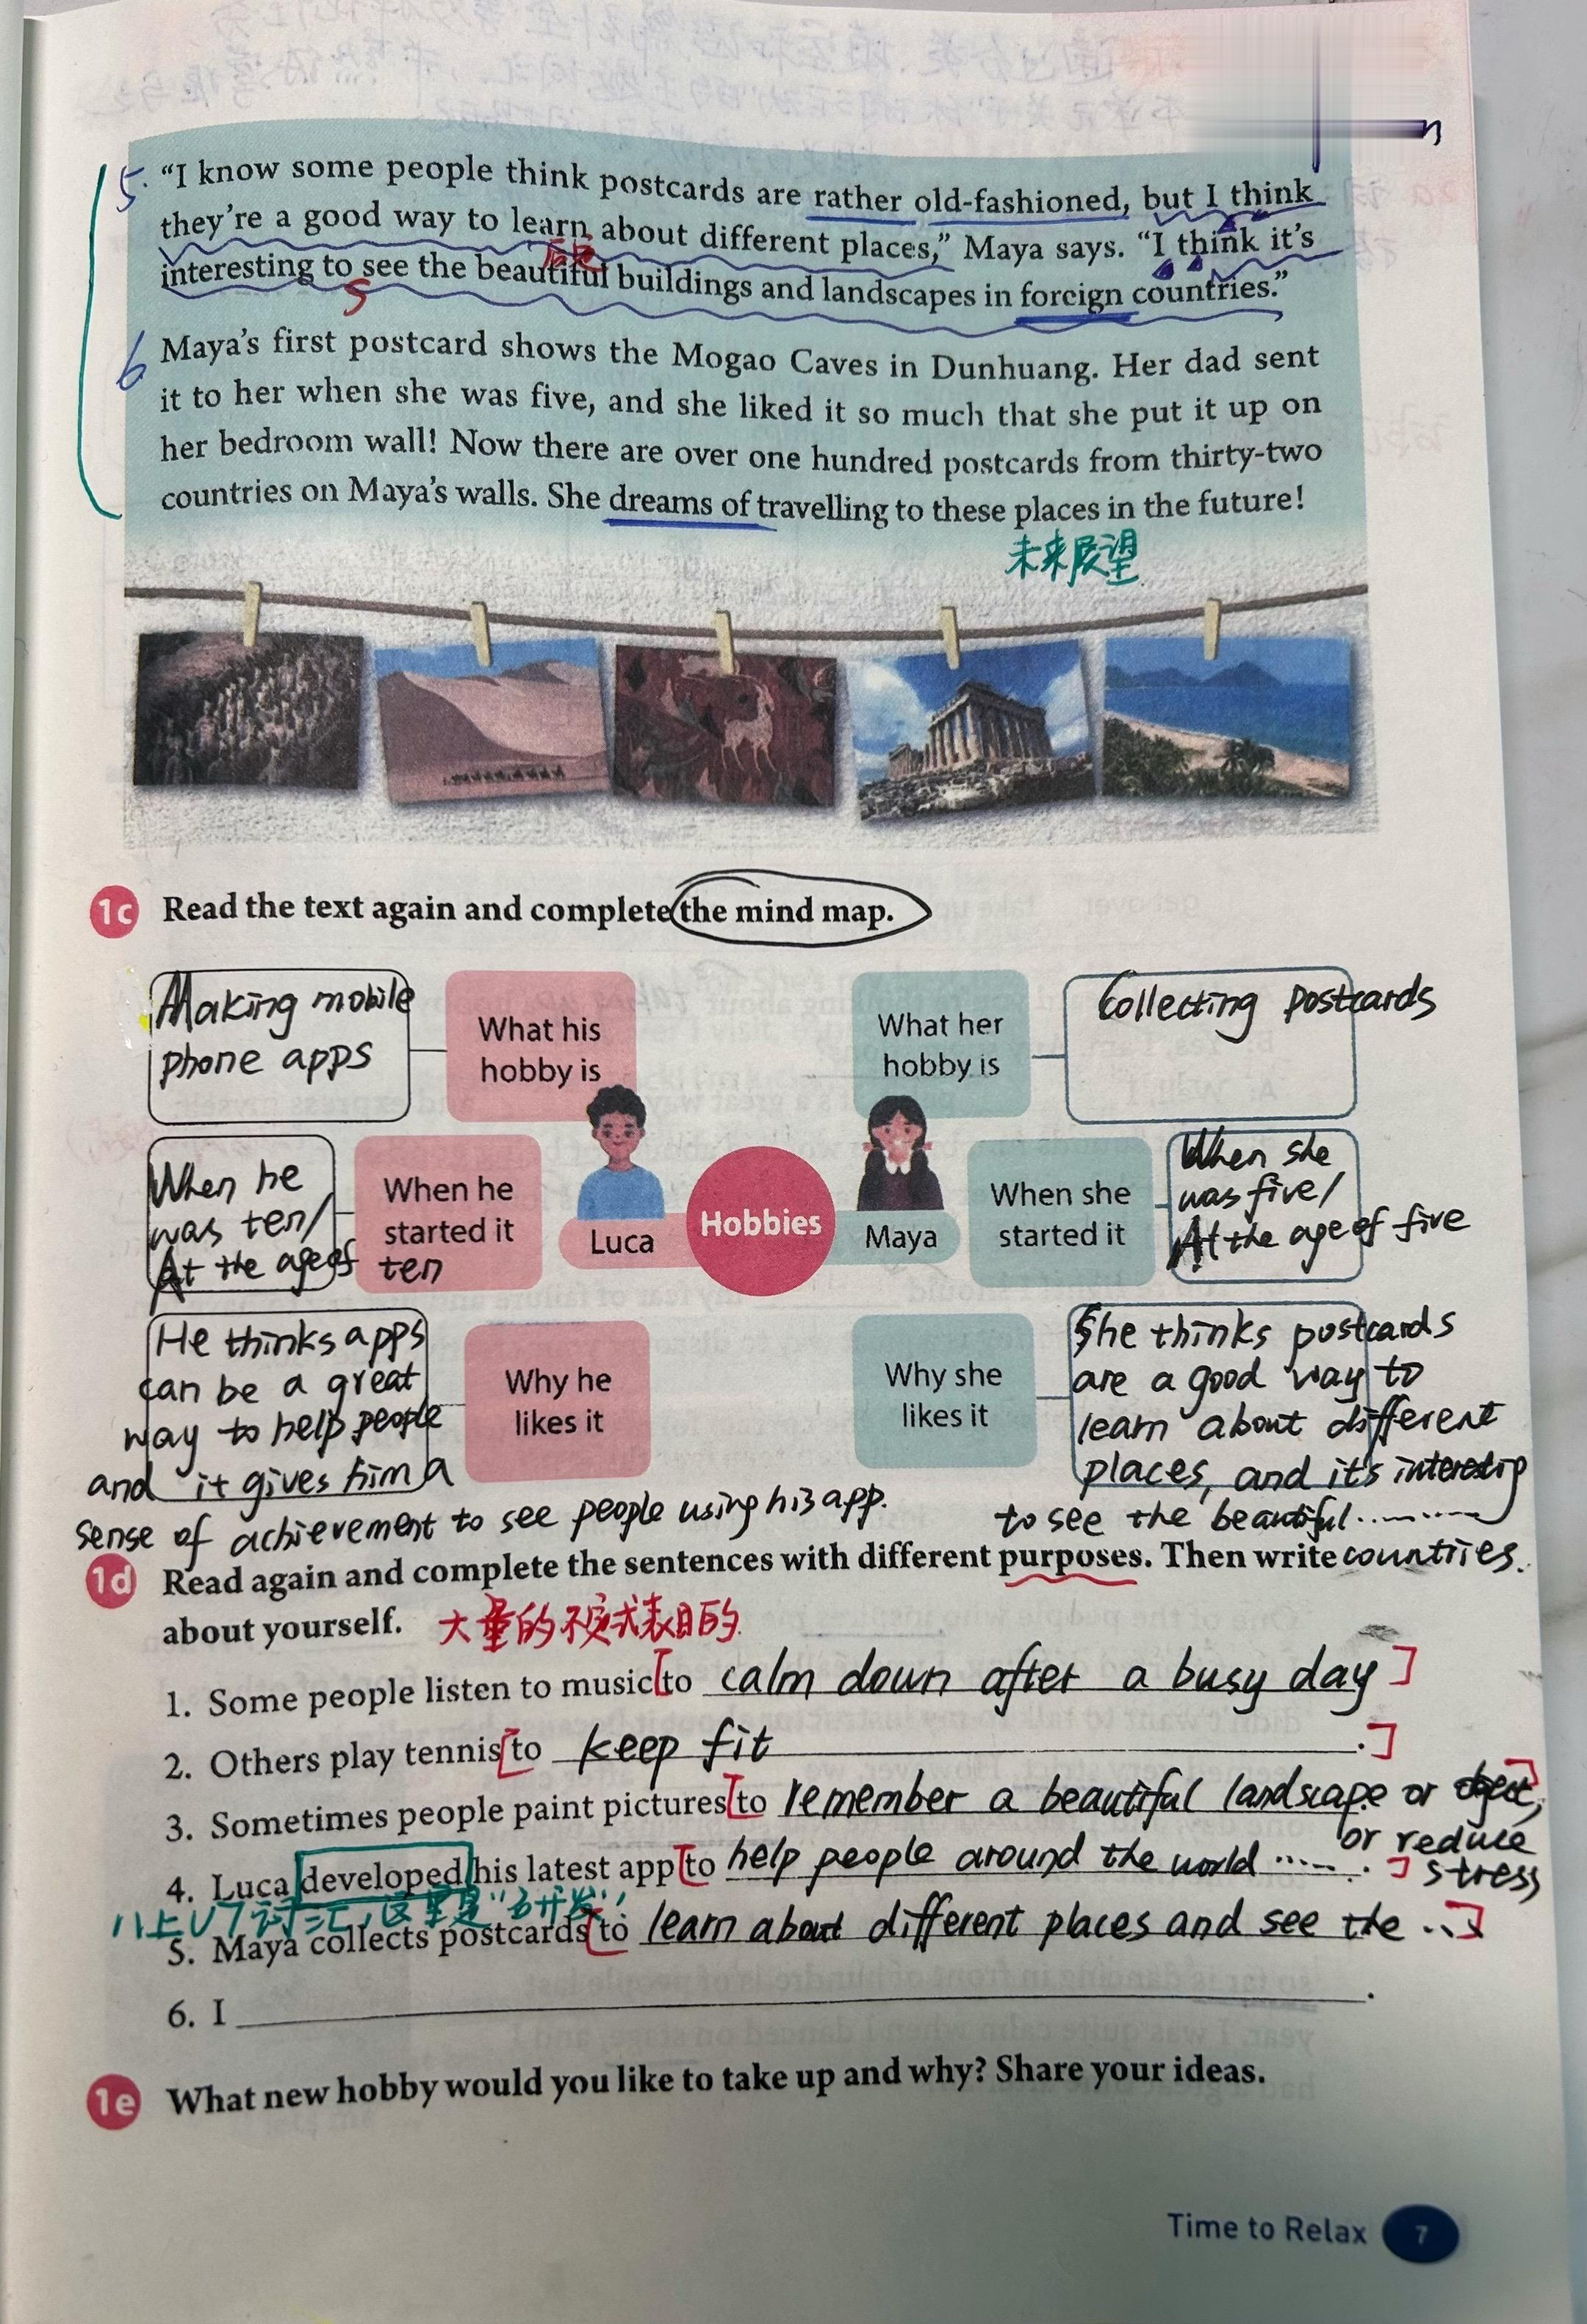 5. “I know some people think postcards are rather old-fashioned, but I think
they’re a good way to learn about different places,” Maya says. “I think it’s
interesting to see the beautiful buildings and landscapes in foreign countries.”
S
6 Maya’s first postcard shows the Mogao Caves in Dunhuang. Her dad sent
it to her when she was five, and she liked it so much that she put it up on
her bedroom wall! Now there are over one hundred postcards from thirty-two
countries on Maya’s walls. She dreams of travelling to these places in the future!
未来展望
1c Read the text again and complete the mind map.
Making mobile
phone apps
What his
hobby is
What her
hobby is
Collecting postcards
When he
was ten/
At the age of ten
When he
started it
Luca
Hobbies
Maya
When she
started it
When she
was five/
At the age of five
He thinks apps
can be a great
way to help people
and it gives him a
sense of achievement to see people using his app.
Why he
likes it
Why she
likes it
She thinks postcards
are a good way to
learn about different
places, and it's interesting
to see the beautiful ........
countries.
1d Read again and complete the sentences with different purposes. Then write
about yourself.
大量的不定式表目的
1. Some people listen to music [to calm down after a busy day]
2. Others play tennis [to keep fit .]
3. Sometimes people paint pictures [to remember a beautiful landscape or object,]
or reduce
stress
4. Luca developed his latest app [to help people around the world ...... .]
八上U7词汇,这里是“研发”
5. Maya collects postcards [to learn about different places and see the ...]
6. I .
1e What new hobby would you like to take up and why? Share your ideas.
Time to Relax 7